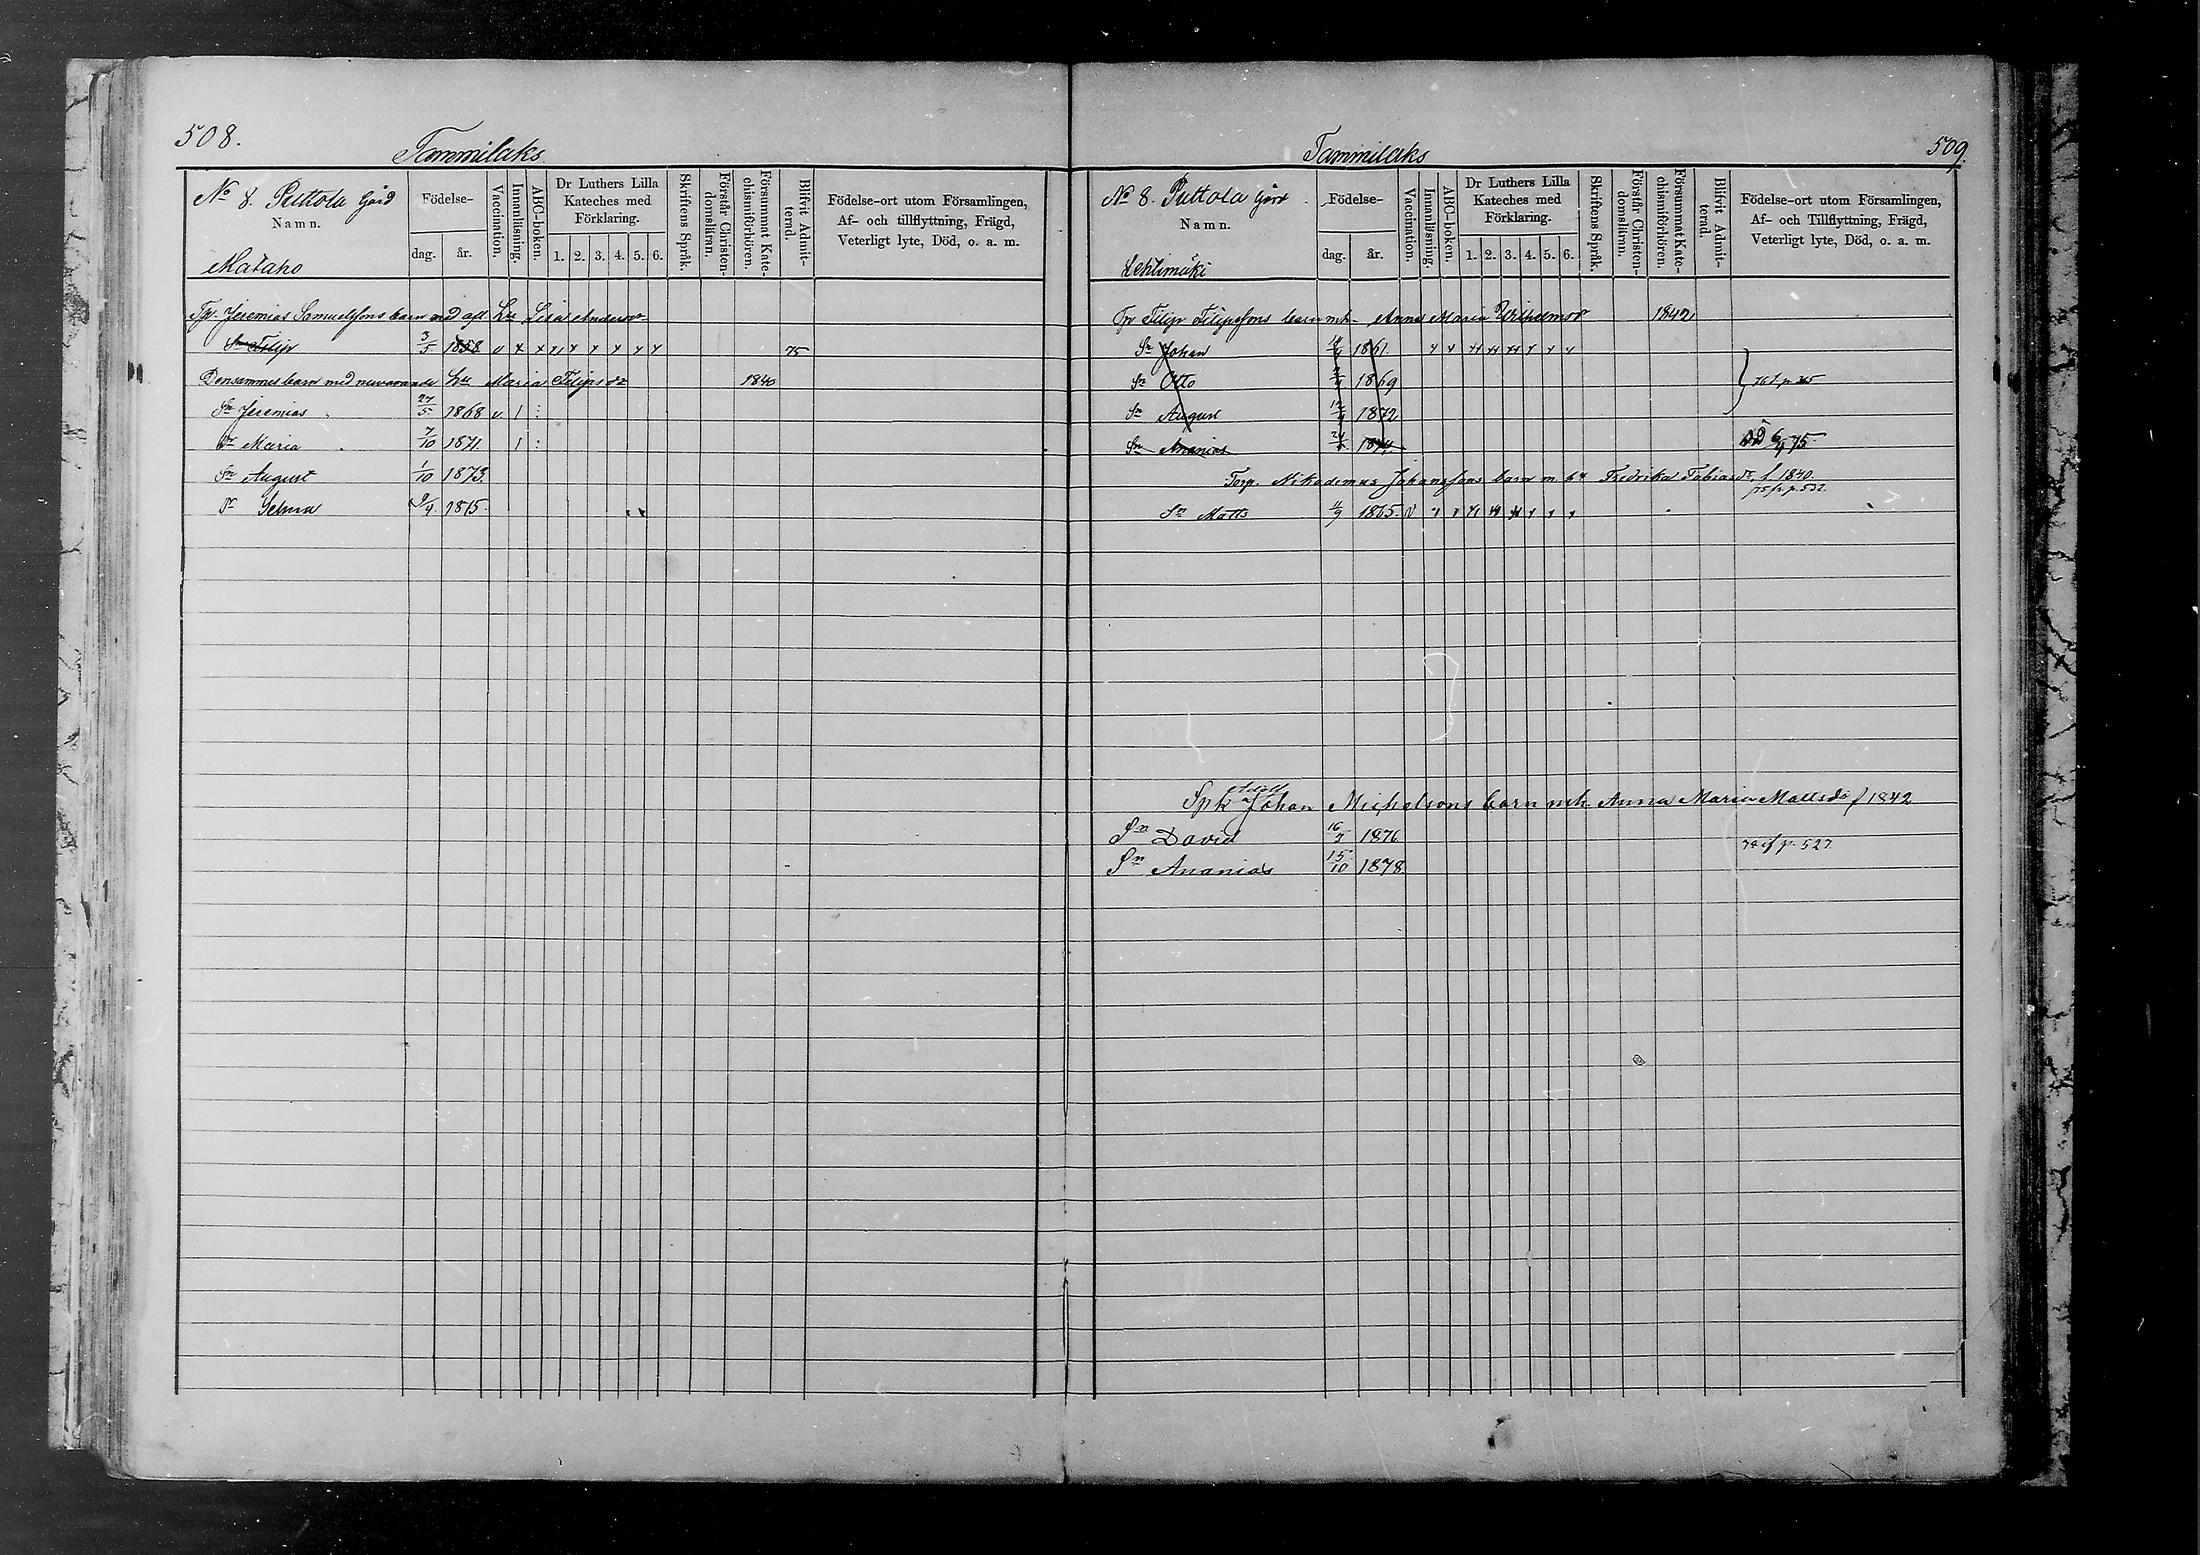 508.
Tammilaks
No 8. Puttola Gård
Namn.
Mataho
Födelse-
dag. år.
Vaccination.
Innanläsning.
ABC-boken.
Dr Luthers Lilla
Kateches med
Förklaring.
1. 2. 3. 4. 5. 6.
Skriftens Språk.
Förstår Christen-
domsläran.
Försummat Kate-
chismiförhören.
Blifvit Admit-
terad.
Födelse-ort utom Församlingen,
Af- och tillflyttning, Frägd,
Veterligt lyte, Död, o. a. m.
Tp. Jeremias Samuelssons barn med afl. Hu Lisa Andersdr
Sn Filip 3/5 1858 v x x x x x x x x 75
Densammes barn med nuvarande hu Maria Filipsdr 1840
Sn Jeremias 27/5 1868 v 1 :
Dr Maria 7/10 1871. 1 :
Sn August 1/10 1873.
Dr Selma 9/4 1875.
Tammilaks
509.
No 8. Puttola Gård
Namn.
Lehtimäki
Födelse-
dag. år.
Vaccination.
Innanläsning.
ABC-boken.
Dr Luthers Lilla
Kateches med
Förklaring.
1. 2. 3. 4. 5. 6.
Skriftens Språk.
Förstår Christen-
domsläran.
Försummat Kate-
chismiförhören.
Blifvit Admit-
terad.
Födelse-ort utom Församlingen,
Af- och Tillflyttning, Frägd,
Veterligt lyte, Död, o. a. m.
Tp Filip Filipssons barn mh. Anna Maria Wilhelmsdr 1842
Sn Johan 1861.
Sn Otto 1869
Sn August 1872
Sn Ananias 1874. Död 6/4 75.
Torp. Nikodemus Johanssons barn m hu Fredrika Tobiasdr, f. 1840.
75 fr. p. 532.
Sn Matts 1/9 1865. v
Spk Johan Michelsons barn mh Anna Maria Mattsdr f 1842
Sn David 16/3 1876
p. 527.
Sn Ananias 15/10 1878